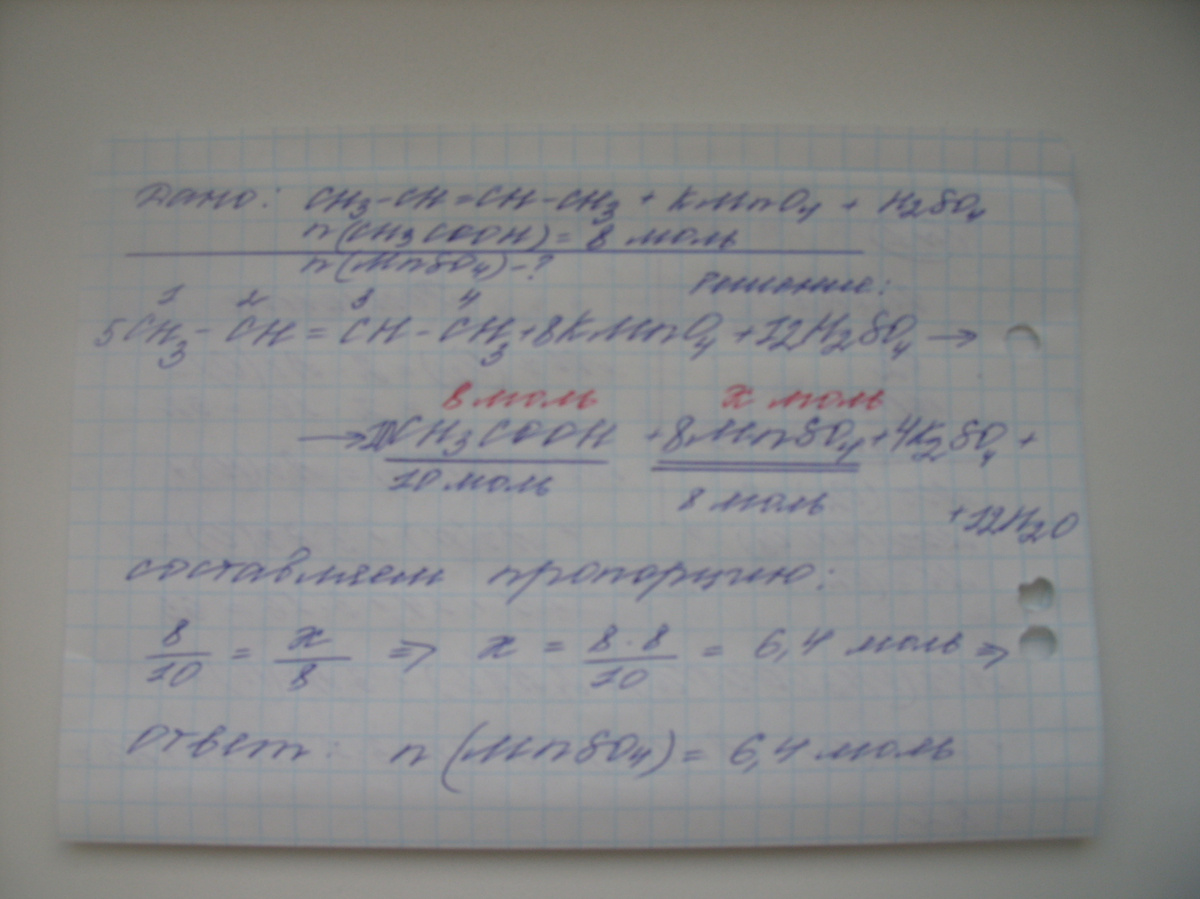 Дано: CH3-CH=CH-CH3 + KMnO4 + H2SO4
n(CH3COOH) = 8 моль
n(MnSO4)-?
Решение:
1 2 3 4
5CH3-CH=CH-CH3+8KMnO4+12H2SO4→
8 моль x моль
→10CH3COOH +8MnSO4+4K2SO4+
10 моль 8 моль
+12H2O
составляем пропорцию:
8/10 = x/8 => x = 8·8/10 = 6,4 моль =>
Ответ: n(MnSO4)= 6,4 моль